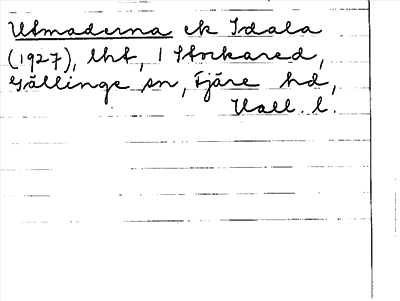 Utmaderna ek Idala
(1927), lht, 1 Stockared,
Gällinge sn, Fjäre hd,
Hall. l.